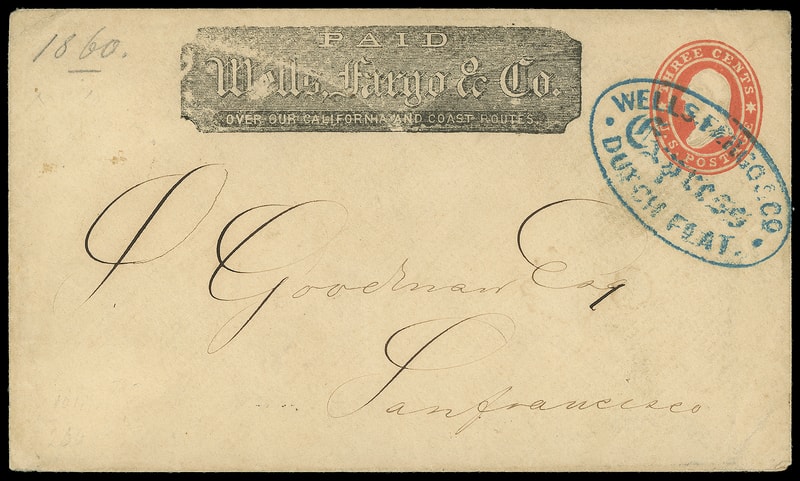 1860.
PAID
Wells, Fargo & Co.
OVER OUR CALIFORNIA AND COAST ROUTES.
THREE CENTS
U.S. POSTAGE
WELLS, FARGO & CO
EXPRESS
DUTCH FLAT.
Goodman Esq
San francisco